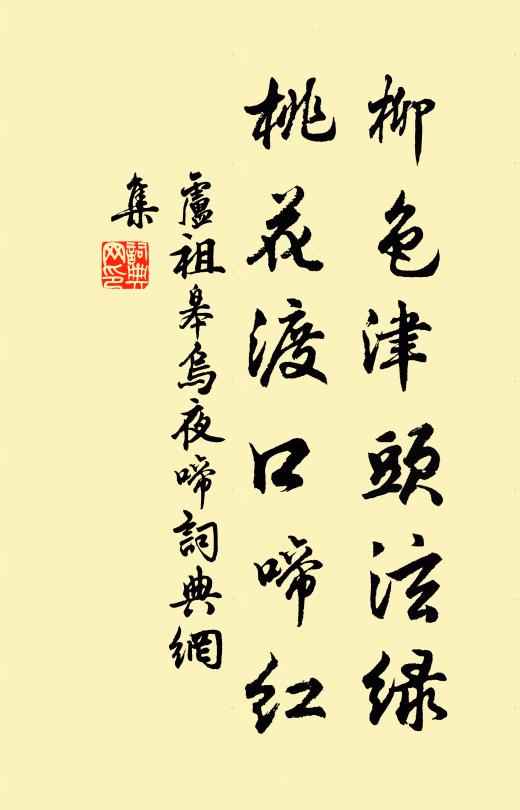 柳色津頭泫绿
桃花渡口啼红
盧祖皋烏夜啼詞典網
集
詞典
网印